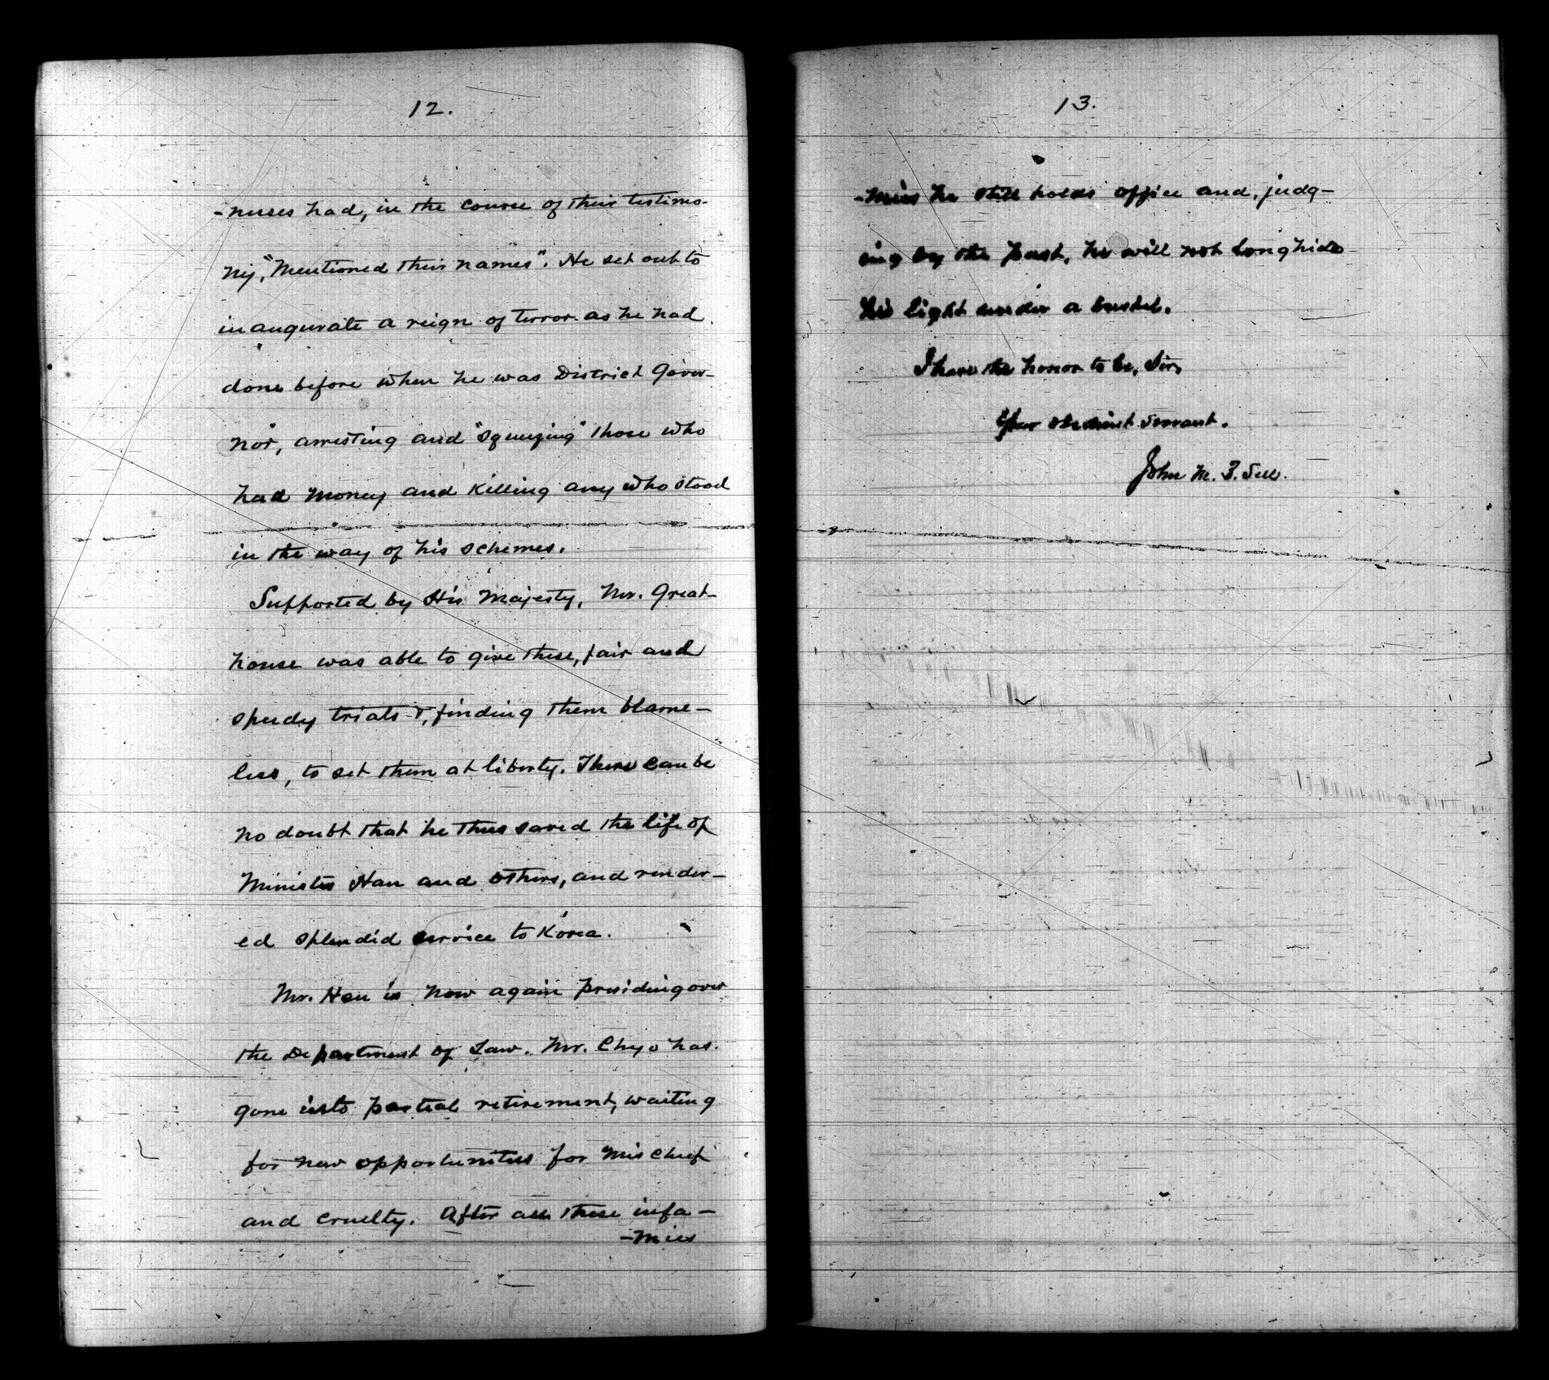 12.
-nesses had, in the course of their testimo-
ny, "mentioned their names". He set out to
inaugurate a reign of terror as he had
done before when he was District Gover-
nor, arresting and "squeezing" those who
had money and killing any who stood
in the way of his schemes.
Supported by His Majesty, Mr. Great-
house was able to give these, fair and
speedy trials &, finding them blame-
less, to set them at liberty. There can be
no doubt that he thus saved the life of
Minister Han and others, and render-
ed splendid service to Korea.
Mr. Han is now again presiding over
the Department of Law. Mr. Chyo has
gone into partial retirement, waiting
for new opportunities for mischief
and cruelty. After all these infa-
-mies
13.
-mies he still holds office and, judg-
ing by the past, he will not long hide
his light under a bushel.
I have the honor to be, Sir,
Your obedient servant.
John M. B. Sill.